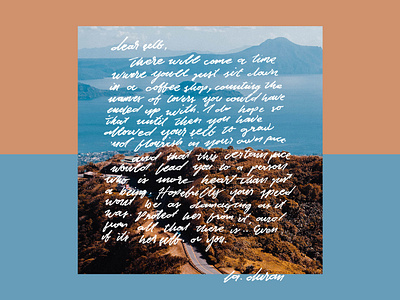 dear self,
There will come a time
where you'll just sit down
in a coffee shop, counting the
number of lovers you could have
ended up with. I do hope so
that until then you have
allowed your self to grow
and flourish in your own pace
and that this certain pace
would lead you to a person
who is more heart than just
a being. Hopefully your speed
won't be as damaging as it
was. Protect her from it and
from all that there is.. Even
if its her self. or you.
duran